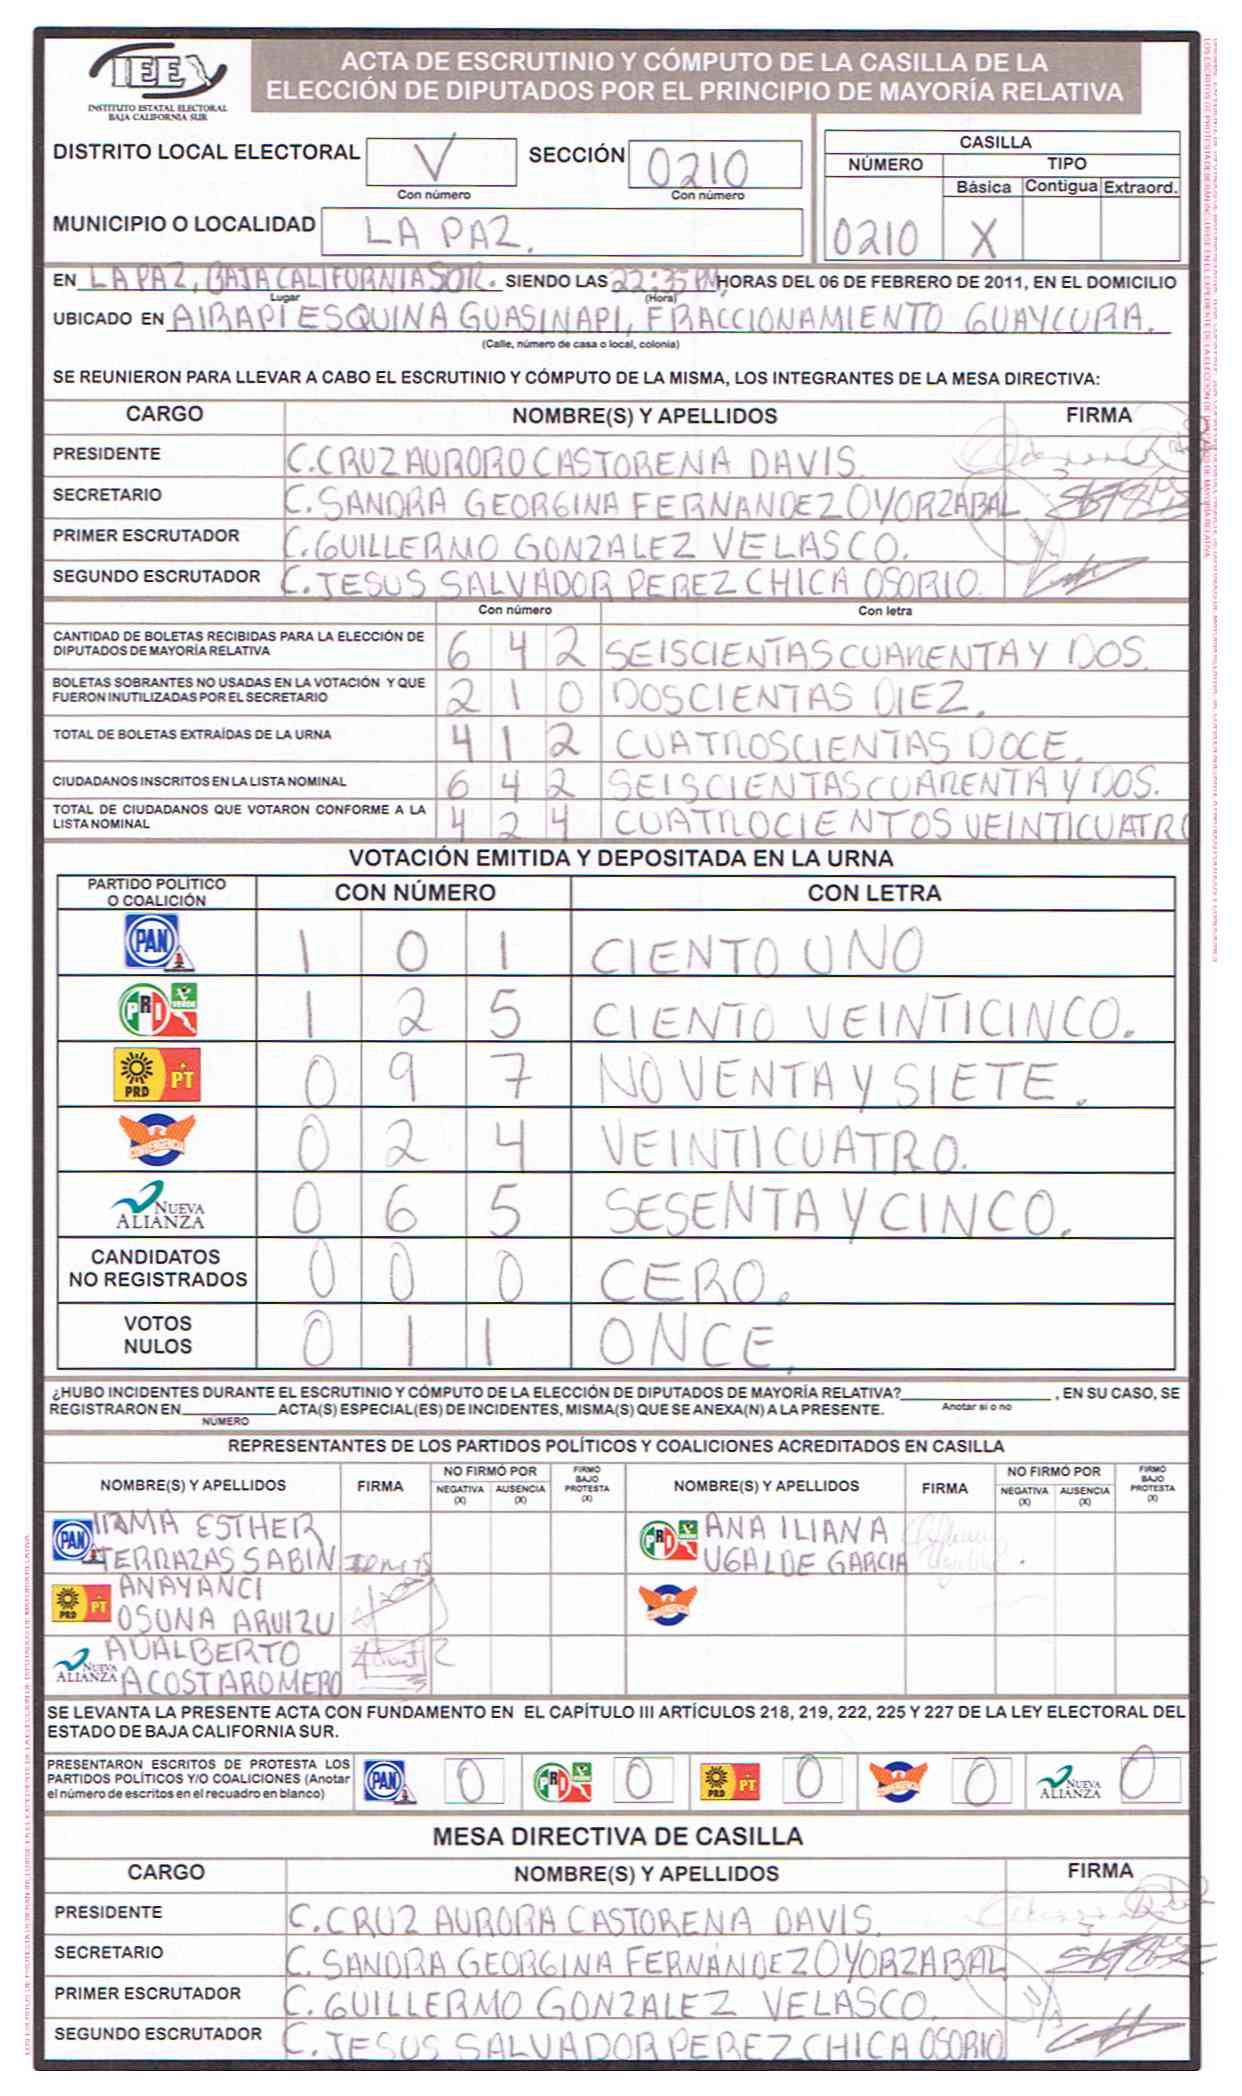 IEE
INSTITUTO ESTATAL ELECTORAL
BAJA CALIFORNIA SUR
ACTA DE ESCRUTINIO Y CÓMPUTO DE LA CASILLA DE LA
ELECCIÓN DE DIPUTADOS POR EL PRINCIPIO DE MAYORÍA RELATIVA
DISTRITO LOCAL ELECTORAL V SECCIÓN 0210
Con número Con número
MUNICIPIO O LOCALIDAD LA PAZ.
CASILLA
NÚMERO TIPO
Básica Contigua Extraord.
0210 X
EN LA PAZ, BAJA CALIFORNIA SUR. SIENDO LAS 22:35 PM HORAS DEL 06 DE FEBRERO DE 2011, EN EL DOMICILIO
Lugar (Hora)
UBICADO EN AIRAPI ESQUINA GUASINAPI, FRACCIONAMIENTO GUAYCURA.
(Calle, número de casa o local, colonia)
SE REUNIERON PARA LLEVAR A CABO EL ESCRUTINIO Y CÓMPUTO DE LA MISMA, LOS INTEGRANTES DE LA MESA DIRECTIVA:
CARGO NOMBRE(S) Y APELLIDOS FIRMA
PRESIDENTE C. CRUZ AURORO CASTORENA DAVIS.
SECRETARIO C. SANDRA GEORGINA FERNANDEZ OYORZABAL
PRIMER ESCRUTADOR C. GUILLERMO GONZALEZ VELASCO.
SEGUNDO ESCRUTADOR C. JESUS SALVADOR PEREZ CHICA OSORIO.
Con número Con letra
CANTIDAD DE BOLETAS RECIBIDAS PARA LA ELECCIÓN DE
DIPUTADOS DE MAYORÍA RELATIVA 6 4 2 SEISCIENTAS CUARENTA Y DOS.
BOLETAS SOBRANTES NO USADAS EN LA VOTACIÓN Y QUE
FUERON INUTILIZADAS POR EL SECRETARIO 2 1 0 DOSCIENTAS DIEZ.
TOTAL DE BOLETAS EXTRAÍDAS DE LA URNA 4 1 2 CUATROSCIENTAS DOCE.
CIUDADANOS INSCRITOS EN LA LISTA NOMINAL 6 4 2 SEISCIENTAS CUARENTA Y DOS.
TOTAL DE CIUDADANOS QUE VOTARON CONFORME A LA
LISTA NOMINAL 4 2 4 CUATROCIENTOS VEINTICUATRO
VOTACIÓN EMITIDA Y DEPOSITADA EN LA URNA
PARTIDO POLÍTICO
O COALICIÓN CON NÚMERO CON LETRA
PAN 1 0 1 CIENTO UNO
PRI VERDE 1 2 5 CIENTO VEINTICINCO.
PRD PT 0 9 7 NOVENTA Y SIETE.
CONVERGENCIA 0 2 4 VEINTICUATRO.
NUEVA
ALIANZA 0 6 5 SESENTA Y CINCO.
CANDIDATOS
NO REGISTRADOS 0 0 0 CERO.
VOTOS
NULOS 0 1 1 ONCE.
¿HUBO INCIDENTES DURANTE EL ESCRUTINIO Y CÓMPUTO DE LA ELECCIÓN DE DIPUTADOS DE MAYORÍA RELATIVA? , EN SU CASO, SE
Anotar si o no
REGISTRARON EN ACTA(S) ESPECIAL(ES) DE INCIDENTES, MISMA(S) QUE SE ANEXA(N) A LA PRESENTE.
NÚMERO
REPRESENTANTES DE LOS PARTIDOS POLÍTICOS Y COALICIONES ACREDITADOS EN CASILLA
NOMBRE(S) Y APELLIDOS FIRMA NO FIRMÓ POR NEGATIVA (X) AUSENCIA (X) FIRMÓ BAJO PROTESTA (X) NOMBRE(S) Y APELLIDOS FIRMA NO FIRMÓ POR NEGATIVA (X) AUSENCIA (X) FIRMÓ BAJO PROTESTA (X)
PAN IRMA ESTHER
TERRAZAS SABIN
PRI VERDE ANA ILIANA
UGALDE GARCIA
PRD PT ANAYANCI
OSUNA ARVIZU
CONVERGENCIA
NUEVA
ALIANZA ADALBERTO
ACOSTA ROMERO
SE LEVANTA LA PRESENTE ACTA CON FUNDAMENTO EN EL CAPÍTULO III ARTÍCULOS 218, 219, 222, 225 Y 227 DE LA LEY ELECTORAL DEL
ESTADO DE BAJA CALIFORNIA SUR.
PRESENTARON ESCRITOS DE PROTESTA LOS
PARTIDOS POLÍTICOS Y/O COALICIONES (Anotar
el número de escritos en el recuadro en blanco)
PAN 0 PRI VERDE 0 PRD PT 0 CONVERGENCIA 0 NUEVA ALIANZA 0
MESA DIRECTIVA DE CASILLA
CARGO NOMBRE(S) Y APELLIDOS FIRMA
PRESIDENTE C. CRUZ AURORA CASTORENA DAVIS.
SECRETARIO C. SANDRA GEORGINA FERNÁNDEZ OYORZABAL
PRIMER ESCRUTADOR C. GUILLERMO GONZALEZ VELASCO.
SEGUNDO ESCRUTADOR C. JESUS SALVADOR PEREZ CHICA OSORIO